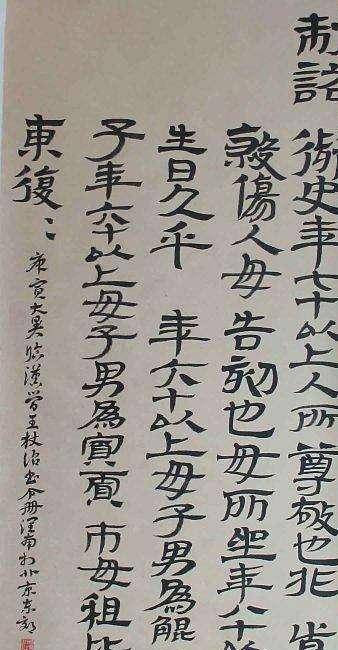 制詔御史年七十以上人所尊敬也非首
殺傷人毋告劾也毋所坐年八十以
生日久乎 年六十以上毋子男為鯤
子年六十以上毋子男為寡賈市毋租比
東復〻
庚寅大昊臨漢簡王杖诏书令册於北京東郊